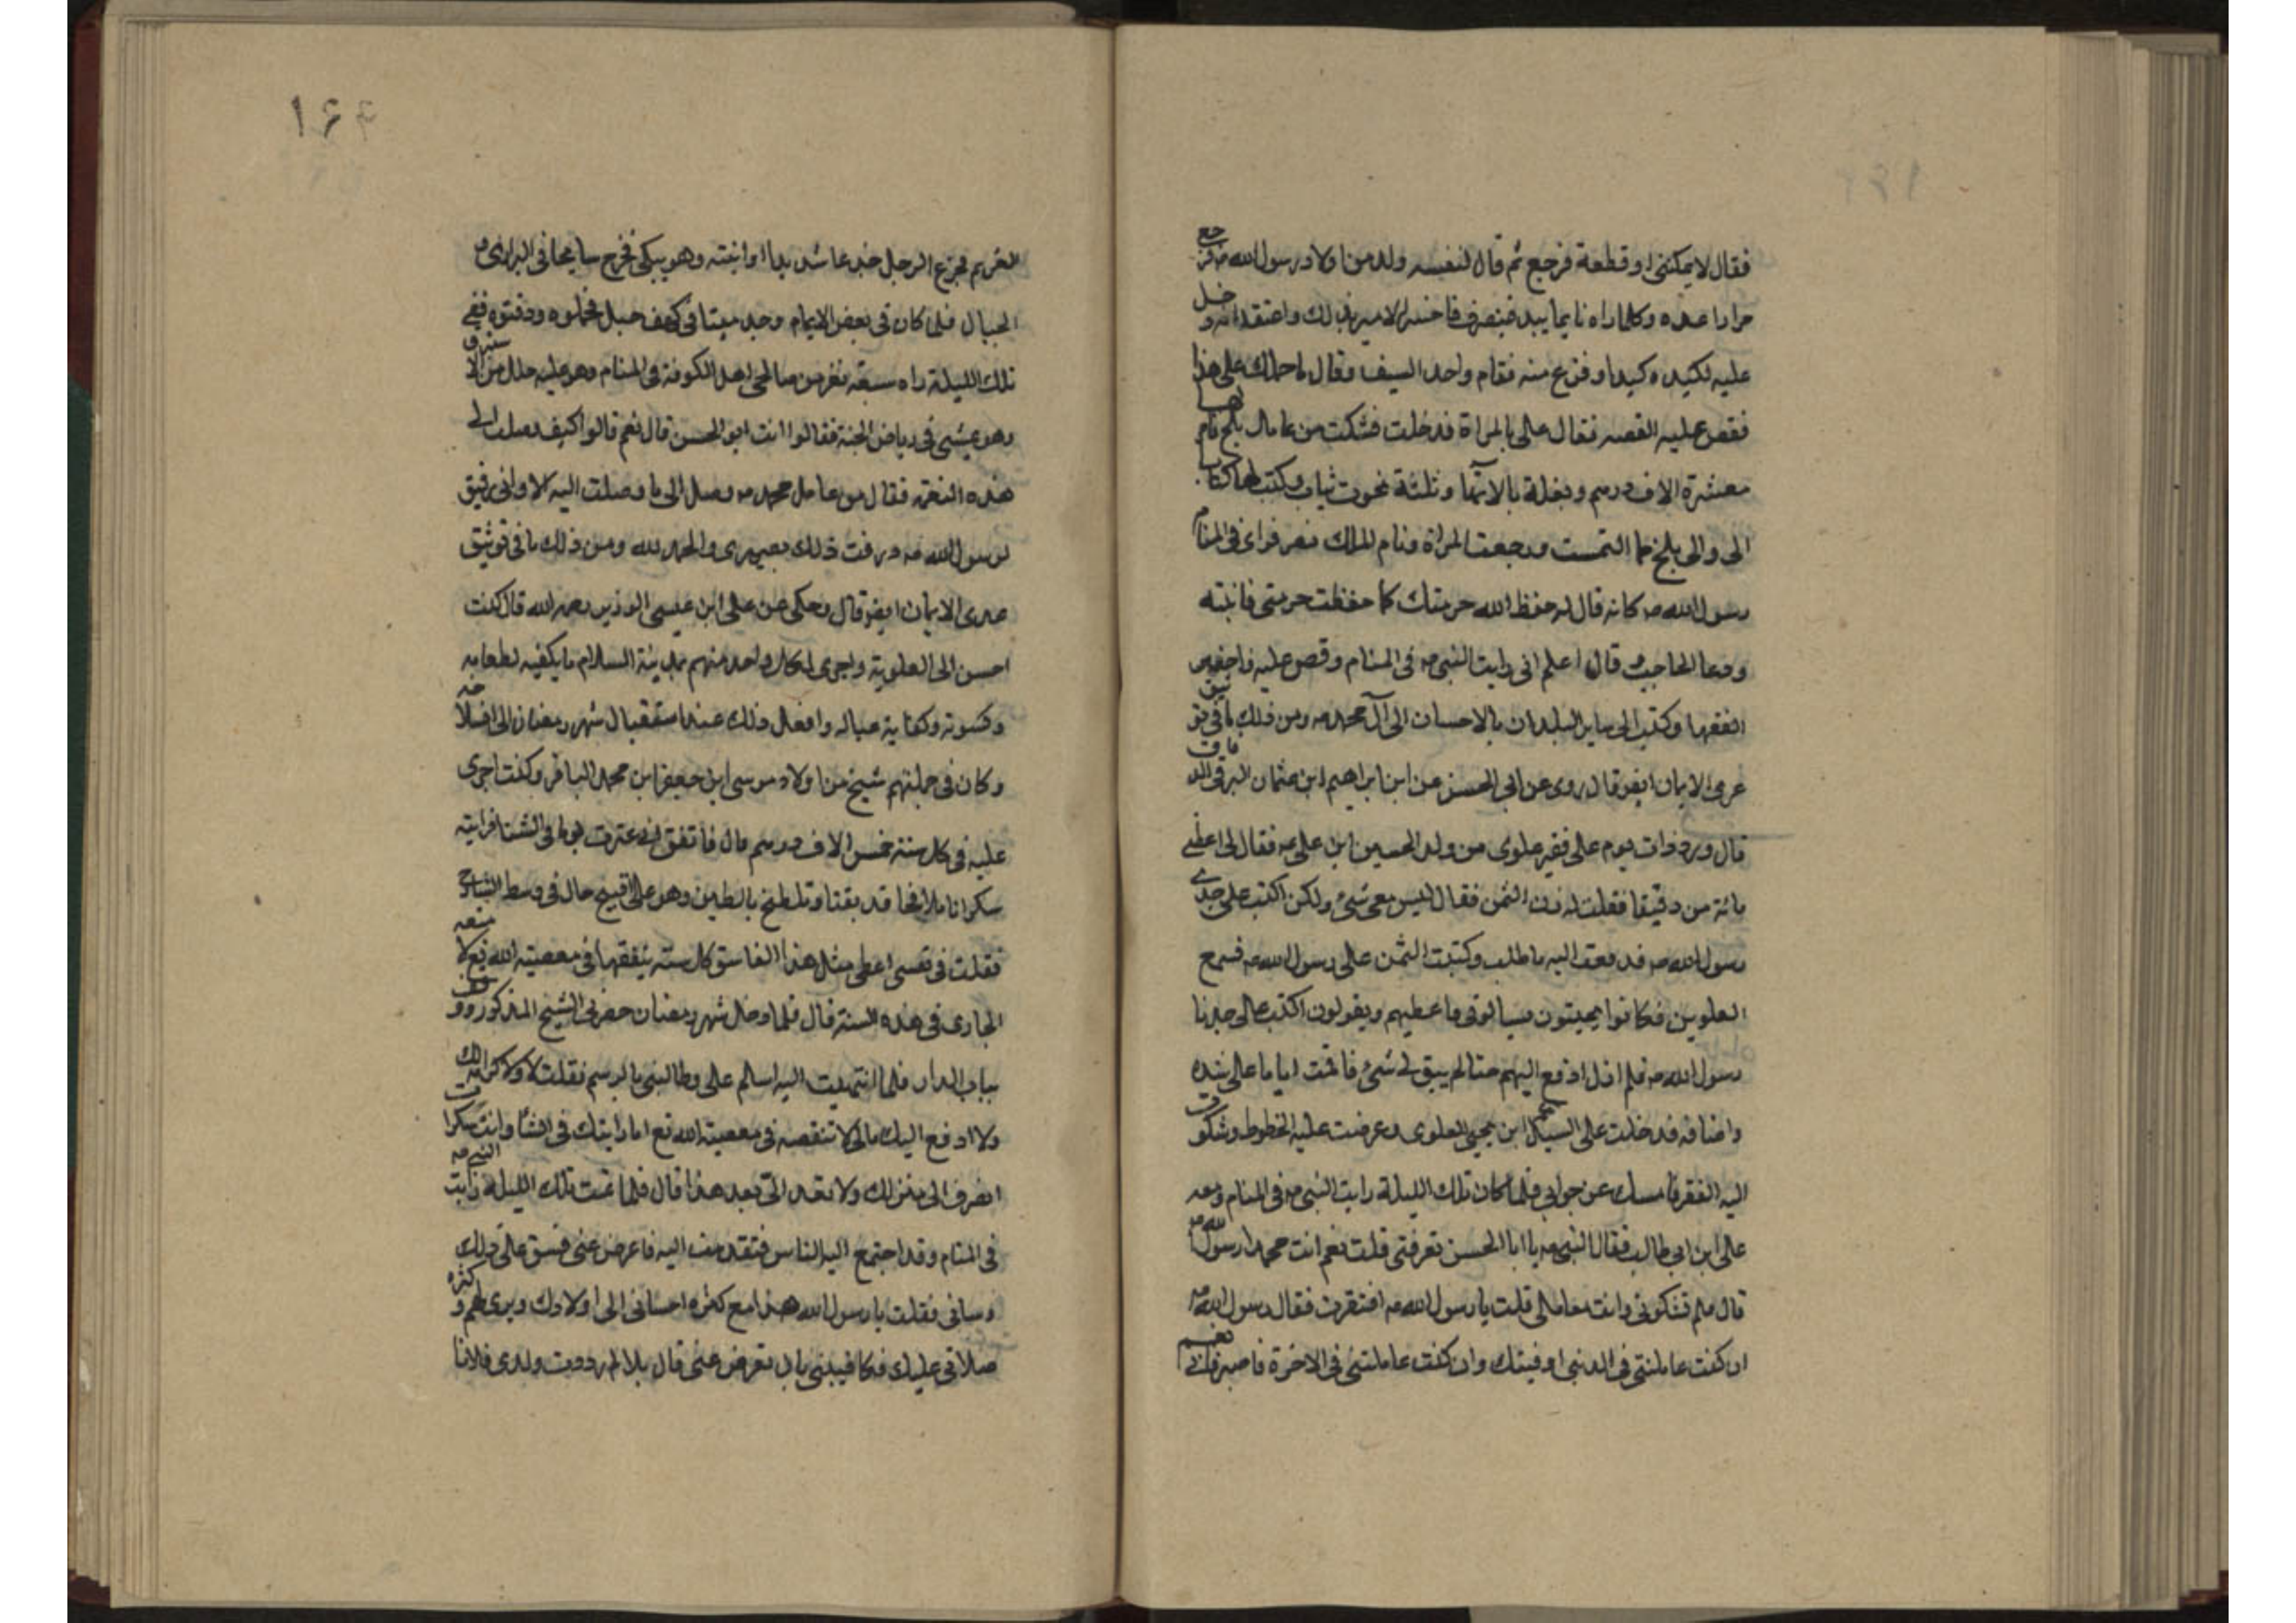 فقال لا يمكننى او قطعة فرجع ثم قال لنفسه ولد من اولاد رسول الله ص فرجع
مرارا عده وكلما راه نايما يبد فينصرف فاحس الامير بذلك واعتقد انه دخل
عليه لكيده كيدا وفزع منه فقام واخذ السيف وقال ما حملك على هذا
فقص عليه القصه فقال على بالمراة فدخلت فشكت من عامل بلخ فامر لها
بعشرة الاف درهم وبغلة بالاتها وثلثة تخوت ثياب وكتب لها كتابا
الى والى بلخ بما التمست ورجعت المراة ونام الملك نصر فراى فى المنام
رسول الله ص كانه قال له حفظ الله حرمتك كما حفظت حرمتى فانتبه
ودعا الحاجب وقال اعلم انى رايت النبى ص فى المنام وقص عليه فاحضر
الفقها وكتب الى ساير البلدان بالاحسان الى آل محمد ص ومن ذلك ما فى توثيق
عرى الايمان ايضو قال روى عن ابى الحسن عن ابن ابراهيم ابن عثمان البرقى الدقاق
قال ورد ذات يوم على فقير علوى من ولد الحسين ابن على ع فقال لى اعطنى
مائة من دقيقا فقلت له زن الثمن فقال ليس معى شئ ولكن اكتب على جدى
رسول الله ص فدفعت اليه ما طلب وكتبت الثمن على رسول الله ص فسمع
العلوين فكانوا يجيئون ويسالونى فاعطيهم ويقولون اكتب على جدنا
رسول الله ص فلم ازل ادفع اليهم حتا لم يبق لى شئ فاقمت اياما على شده
واضافه فدخلت على السيد ابن يحيى العلوى وعرضت عليه الخطوط وشكوت
اليه الفقر فامسك عن جوابى فلما كان تلك الليلة رايت النبى ص فى المنام ومعه
على ابن ابى طالب فقال النبى ص يا ابا الحسن تعرفنى قلت نعم انت محمدا رسول الله ص
قال فلم تشكونى وانت معاملى قلت يا رسول الله ص افتقرت فقال رسول الله ص
ان كنت عاملتنى فى الدنيا اوفيتك وان كنت عاملتنى فى الاخرة فاصبر فانى نعم
۱۶۴
الغريم فجزع الرجل جزعا شديدا وانتبه وهو يبكى فخرج سايحا فى البرارى و
الجبال فلما كان فى بعض الايام وجد ميتا فى كهف جبل فحملوه ودفنوه ففى
تلك الليلة راه سبعة نفر من صالحى اهل الكوفة فى المنام وهو عليه حلل من الاستبرق
وهو يمشى فى رياض الجنة فقالوا انت ابو الحسن قال نعم قالوا كيف وصلت الى
هذه النعمة فقال من عامل محمد ص وصل الى ما وصلت اليه الا وانى رفيق
لرسول الله ص رزقت ذلك بصبرى والحمد لله ومن ذلك ما فى توثيق
عرى الايمان ايضو قال وحكى عن على ابن عيسى الوزير رحمه الله قال كنت
احسن الى العلوية واجرى لكل واحد منهم بمدينة السلام ما يكفيه لطعامه
وكسوته وكفاية عياله وافعل ذلك عند استقبال شهر رمضان الى انسلاخه
وكان فى جملتهم شيخ من اولاد موسى ابن جعفر ابن محمد الباقر وكنت اجرى
عليه فى كل سنة خمس الاف درهم قال فاتفق انى عبرت يوما فى الشتا فرايته
سكرانا طافحا قد تقيا وتلطخ بالطين وهو على اقبح حال فى وسط الشارع
فقلت فى نفسى اعطى مثل هذا الفاسق كل سنه ينفقها فى معصية الله تع لامنعه
الجارى فى هذه السنة قال فلما دخل شهر رمضان حضرنى الشيخ المذكور ووقف
بباب الدار فلما انتهيت اليه سلم على وطالبنى بالرسم فقلت لا ولا كرامه لك
ولا ادفع اليك مالى لا تنفقه فى معصية الله تع اما رايتك فى الشتا وانت سكران
انصرف الى منزلك ولا تعد الى بعد هذا قال فلما نمت تلك الليلة رايت النبى ص
فى المنام وقد اجتمع اليه الناس فتقدمت اليه فاعرض عنى فشق على ذلك
وسانى فقلت يا رسول الله هذا مع كثره احسانى الى اولادك وبرى لهم و كثره
صلاتى عليك فكافيتنى بان تعرض عنى قال بلا لم رددت ولدى فلانا